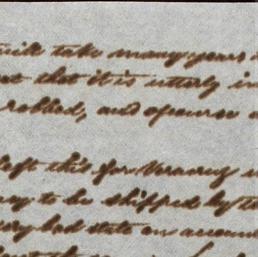 will take many years
that it is utterly
robbed, and of course
left this for Veracruz
to be shipped by
very bad state on account